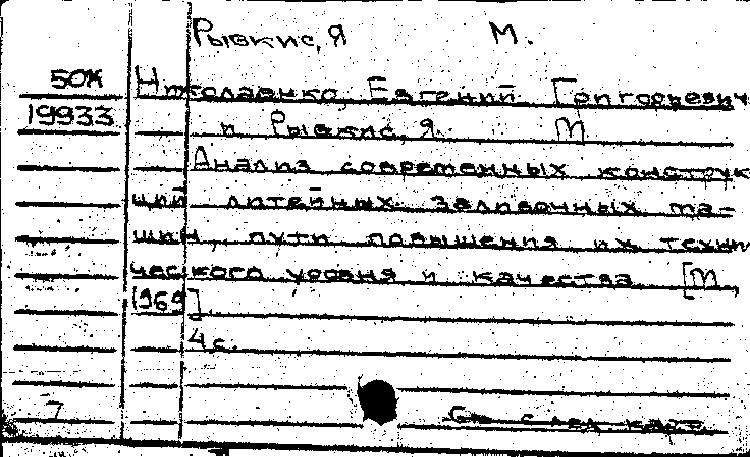 Рывкис, Я М.
50К Николаенко, Евгений Григорьевич
19933 и Рывкис, Я. М
Анализ современных конструк
ций литейных заливочных ма-
шин, пути повышения их техни
ческого уровня и качества [М,
1969]
4 с.
7 См след карт.